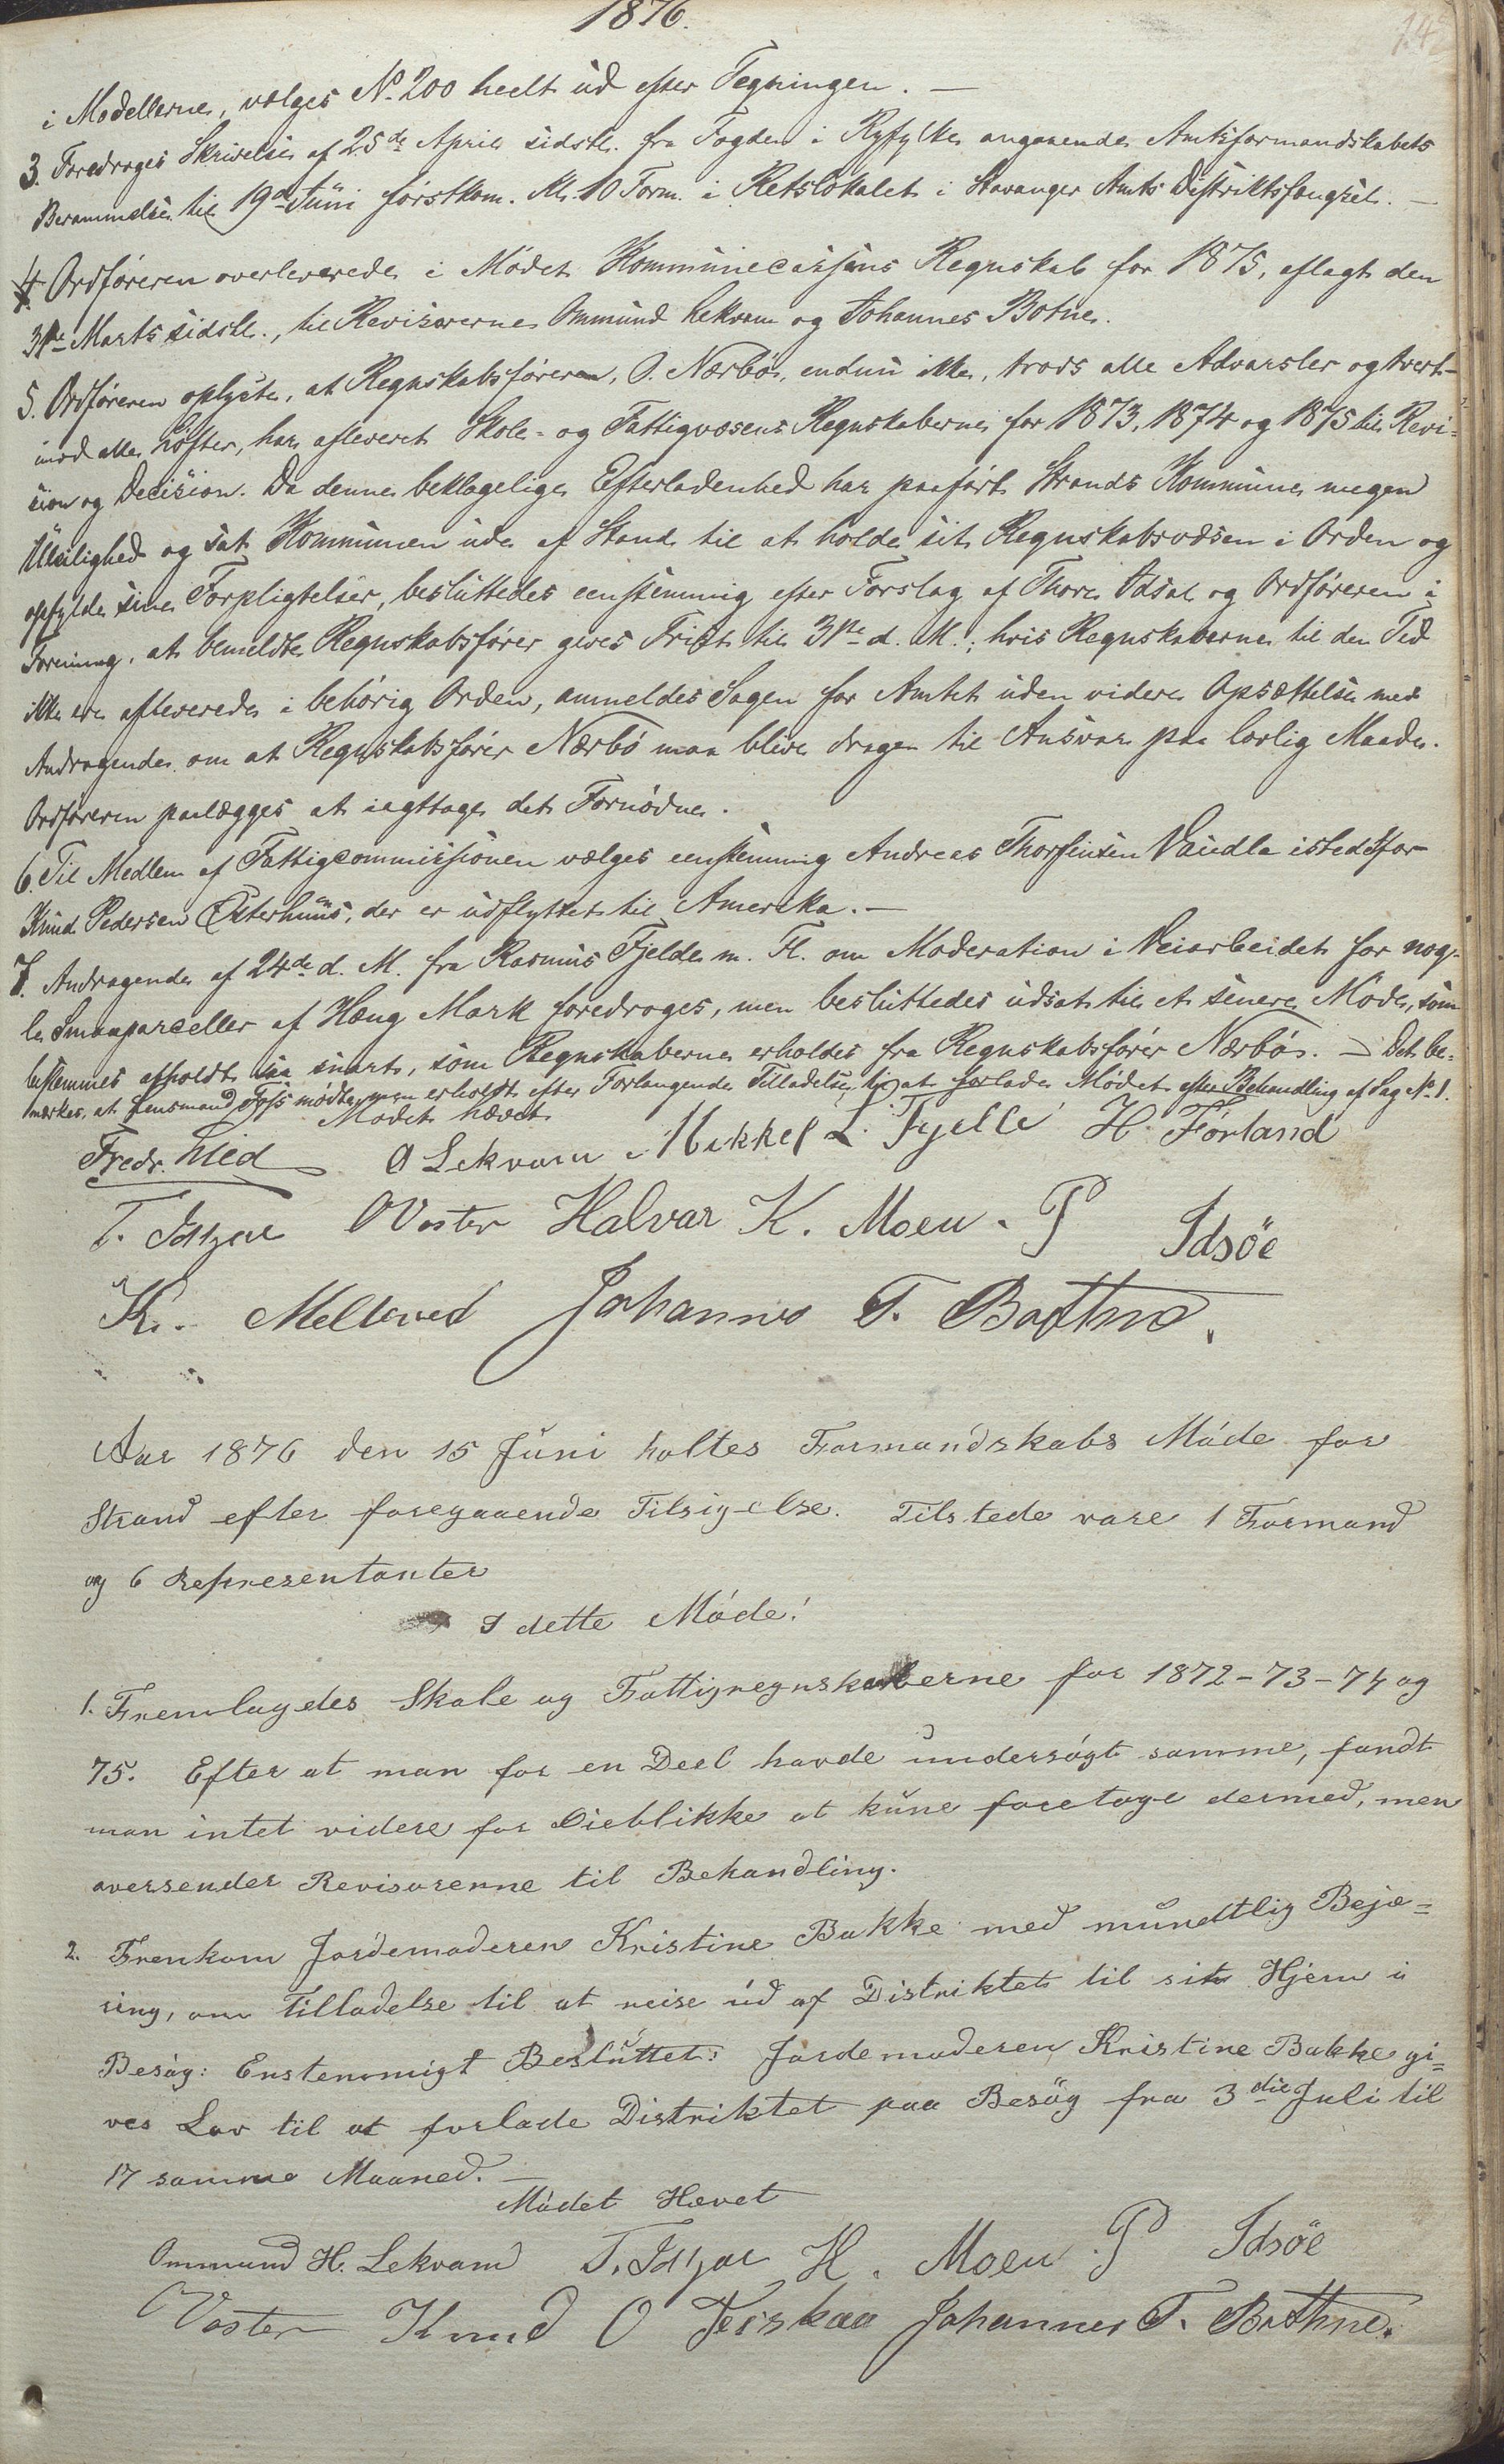 1876.
145
i Modellerne, vælges No. 200 heelt ud efter Tegningen. —
3. Foredroges Skrivelse af 25de April sidstl. fra Fogden i Ryfylke angaaende Amtsformandskabets
Berammelse til 19de Juni førstkom. Kl. 10 Form. i Retslokalet i Stavanger Amts Distriktsfængsel. —
4. Ordføreren overleverede i Mødet Kommunecassens Regnskab for 1875, aflagt den
31te Marts sidstl., til Revisorerne Ommund Lekvam og Johannes Botne.
5. Ordføreren oplyste, at Regnskabsføreren, O. Nærbø, endnu ikke, trods alle Advarsler og tvert-
imod alle Løfter, har afleveret Skole- og Fattigvæsens Regnskaberne for 1873, 1874 og 1875 til Revi-
sion og Decision. Da denne beklagelige Efterladenhed har paaført Strands Kommune megen
Uleilighed og sat Kommunen ude af Stand til at holde sit Regnskabsvæsen i Orden og
opfylde sine Forpligtelser, besluttedes eenstemmig efter Forslag af Thore Idsal og Ordføreren i
Forening, at bemeldte Regnskabsfører gives Frist til 31te d. M.; hvis Regnskaberne til den Tid
ikke ere afleverede i behørig Orden, anmeldes Sagen for Amtet uden videre Opsættelse med
Andragende om at Regnskabsfører Nærbø maa blive dragen til Ansvar paa lovlig Maade.
Ordføreren paalægges at iagttage det Fornødne.
6. Til Medlem af Fattigcommissionen vælges eenstemmig Andreas Thorsensen Vaudla istedetfor
Knud Pedersen Østerhuus, der er udflyttet til Amerika. —
7. Andragende af 24de d. M. fra Rasmus Fjelde m. Fl. om Moderation i Veiarbeidet for nog-
le Smaaparceller af Heng Mark foredroges, men besluttedes udsat til et senere Møde, som
bestemmes afholdt saa snart, som Regnskaberne erholdes fra Regnskabsfører Nærbø. — Det be-
mærkes, at Lensmand Fjs mødte, men erholdt efter Forlangende Tilladelse til at forlade Mødet efter Behandling af Sag No. 1.
Mødet hævet
Fredr. Lied O Lekvam Mikkel L. Fjelle H. Førland
T. Idzal O Voster Halvar K. Moen. P Idsöe
K. Melleved Johannes T. Bottne.
Aar 1876 den 15 Juni holtes Formandskabs Møde for
Strand efter foregaaende Tilsigelse. Tilstede vare 1 Formand
og 6 Representanter
I dette Møde!
1. Fremlagedes Skole og Fattigregnskaberne for 1872-73-74 og
75. Efter at man for en Deel havde undersøgt samme, fandt
man intet videre for Øieblikke at kune foretage dermed, men
oversender Revisorenne til Behandling.
2. Fremkom Jordemoderen Kristine Bakke med mundtlig Bejæ=
ring, om Tilladelse til at reise ud af Distriktet til sit Hjem i
Besøg: Enstemmigt Besluttet: Jordemoderen Kristine Bakke gi=
ves Lov til at forlade Distriktet paa Besøg fra 3die Juli til
17 samme Maaned. —
Mødet Hævet
Ommund H. Lekvam T. Idzal H. Moen P Idsöe
Voster Knud O Jeiskaa Johannes T. Botthne.